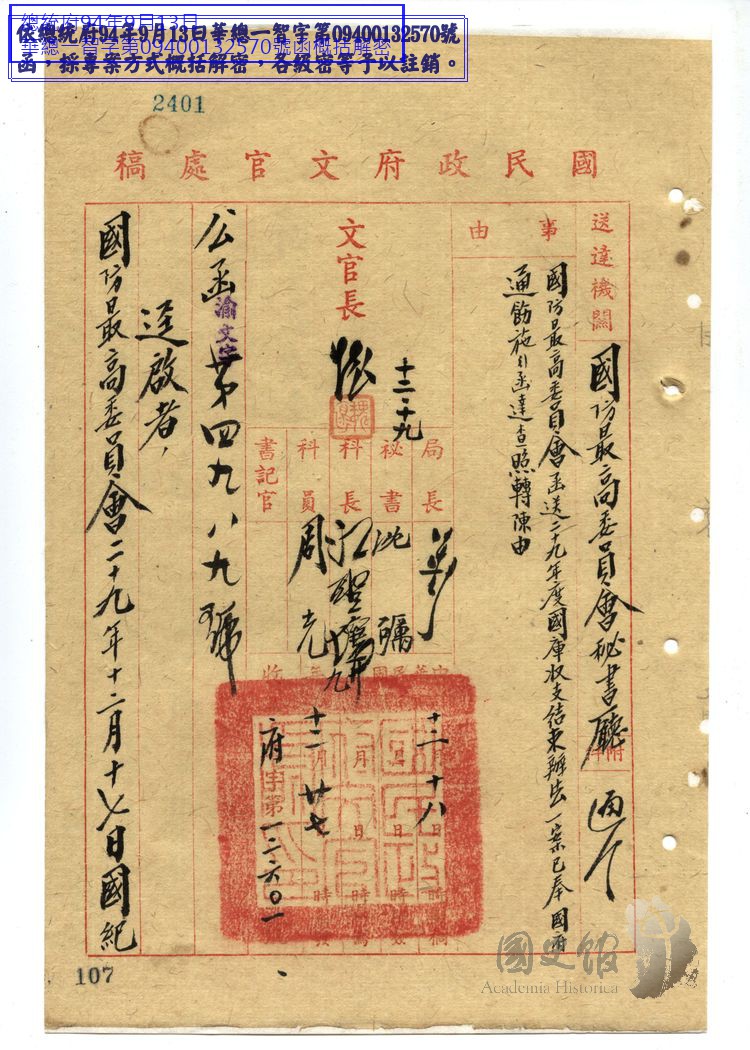 總統府94年9月13日
華總一智字第09400132570號函概括解密
依總統府94年9月13日華總一智字第09400132570號
函，採專案方式概括解密，各級密等予以註銷。
2401
國民政府文官處稿
送達機關
國防最高委員會秘書廳
附件
事由
國防最高委員會函送二十九年度國庫收支結束辦法一案已奉國府
通飭施行函達查照轉陳由
文官長
十二、十九
局長
秘書
科長
科員
書記官
周光
十二月十八日
十二月廿七
府字第一二六〇一
公函渝文字第四九八九號
逕啟者，
國防最高委員會二十九年十二月十七日國紀
107
國史館
Academia Historica